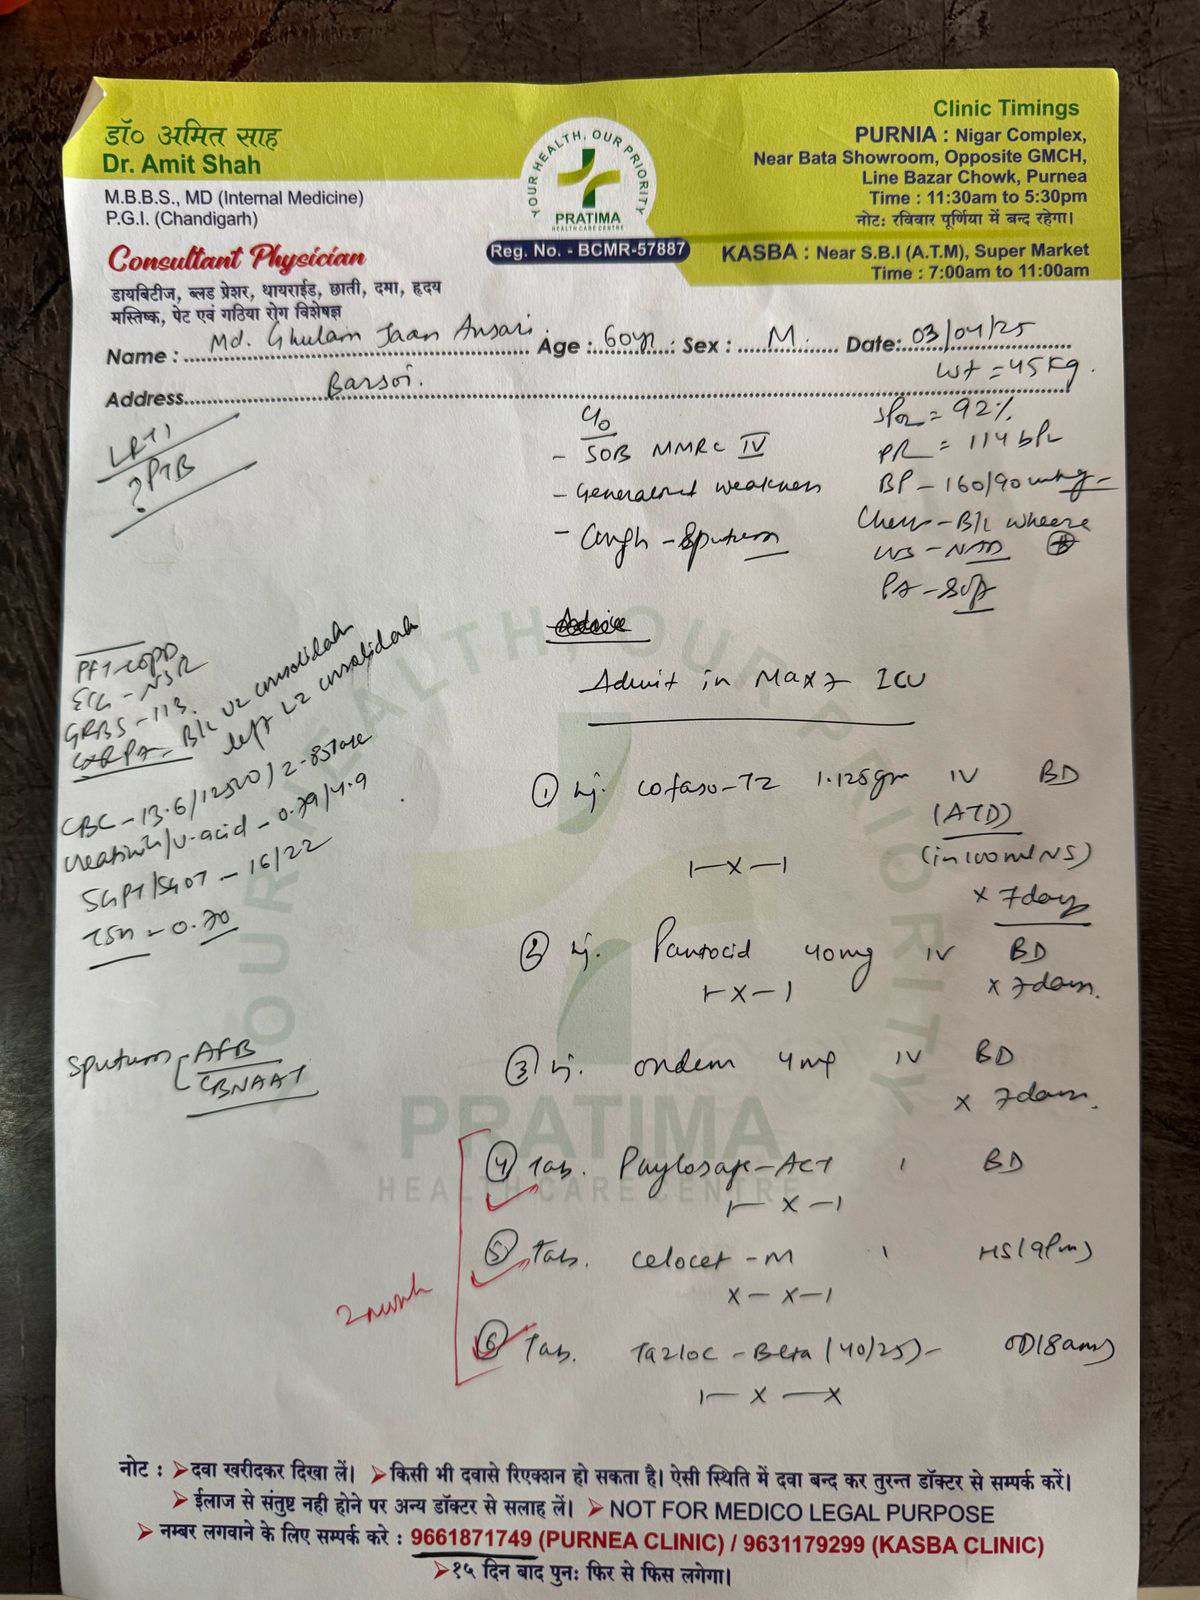 डॉ० अमित साह
Dr. Amit Shah
M.B.B.S., MD (Internal Medicine)
P.G.I. (Chandigarh)
Consultant Physician
डायबिटीज, ब्लड प्रेशर, थायराईड, छाती, दमा, हृदय
मस्तिष्क, पेट एवं गठिया रोग विशेषज्ञ
YOUR HEALTH, OUR PRIORITY
PRATIMA
HEALTH CARE CENTRE
Reg. No. - BCMR-57887
Clinic Timings
PURNIA : Nigar Complex,
Near Bata Showroom, Opposite GMCH,
Line Bazar Chowk, Purnea
Time : 11:30am to 5:30pm
नोट: रविवार पूर्णिया में बन्द रहेगा।
KASBA : Near S.B.I (A.T.M), Super Market
Time : 7:00am to 11:00am
Name : Md. Ghulam Jaan Ansari Age : 60yr Sex : M. Date: 03/04/25
Address Barsoi.
wt = 45kg.
LRTI
?PTB
C/o
- SOB MMRC IV
- Generalised weakness
- Cough - Sputum
SPO2 = 92%
PR = 114 bpm
BP - 160/90 mmHg
Chest - B/L wheeze
CVS - NAD
PA - Soft
PFT - COPD
ECG - NSR
GRBS - 113.
CXR PA - B/L UZ consolidatn
left LZ consolidatn
CBC - 13.6/12500/2.85
Creatinine/U-acid - 0.79/4.9
SGPT/SGOT - 16/22
TSH - 0.70
Sputum AFB
CBNAAT
Advice
Admit in Max7 ICU
① Inj. Cofaso-TZ 1.125gm IV BD
(ATD)
(in 100ml NS)
1-x-1
x 7days
② Inj. Pantocid 40mg IV BD
1-x-1 x 7days.
③ Inj. Ondem 4mg IV BD
x 7days.
④ Tab. -ACT 1 BD
1-x-1
⑤ Tab. Celocet-M 1 HS(9pm)
x-x-1
⑥ Tab. Tazloc-Beta (40/25)- OD(8am)
1-x-x
2 month
YOUR HEALTH, OUR PRIORITY
PRATIMA
HEALTH CARE CENTRE
नोट : ➤दवा खरीदकर दिखा लें। ➤किसी भी दवासे रिएक्शन हो सकता है। ऐसी स्थिति में दवा बन्द कर तुरन्त डॉक्टर से सम्पर्क करें।
➤ ईलाज से संतुष्ट नही होने पर अन्य डॉक्टर से सलाह लें। ➤ NOT FOR MEDICO LEGAL PURPOSE
➤ नम्बर लगवाने के लिए सम्पर्क करे : 9661871749 (PURNEA CLINIC) / 9631179299 (KASBA CLINIC)
➤१५ दिन बाद पुनः फिर से फिस लगेगा।